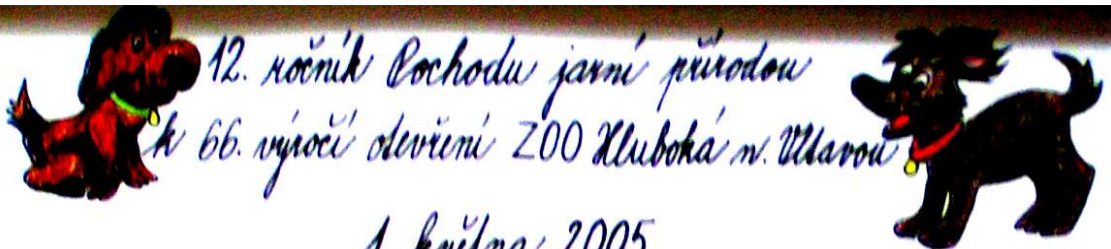 12. ročník Pochodu jarní přírodou
k 66. výročí otevření ZOO Hluboká n. Vltavou
1. května 2005